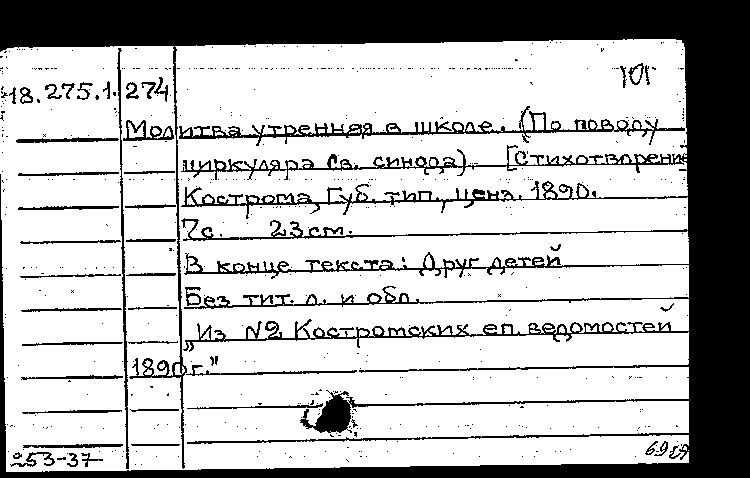 18.275.1.274
Молитва утренняя в школе. (По поводу
циркуляра Св. синода). [Стихотворение
Кострома, Губ. тип., ценз. 1890.
7с. 23см.
В конце текста: Друг детей
Без тит. л. и обл.
„Из №2 Костромских еп. ведомостей
1890г."
253-37